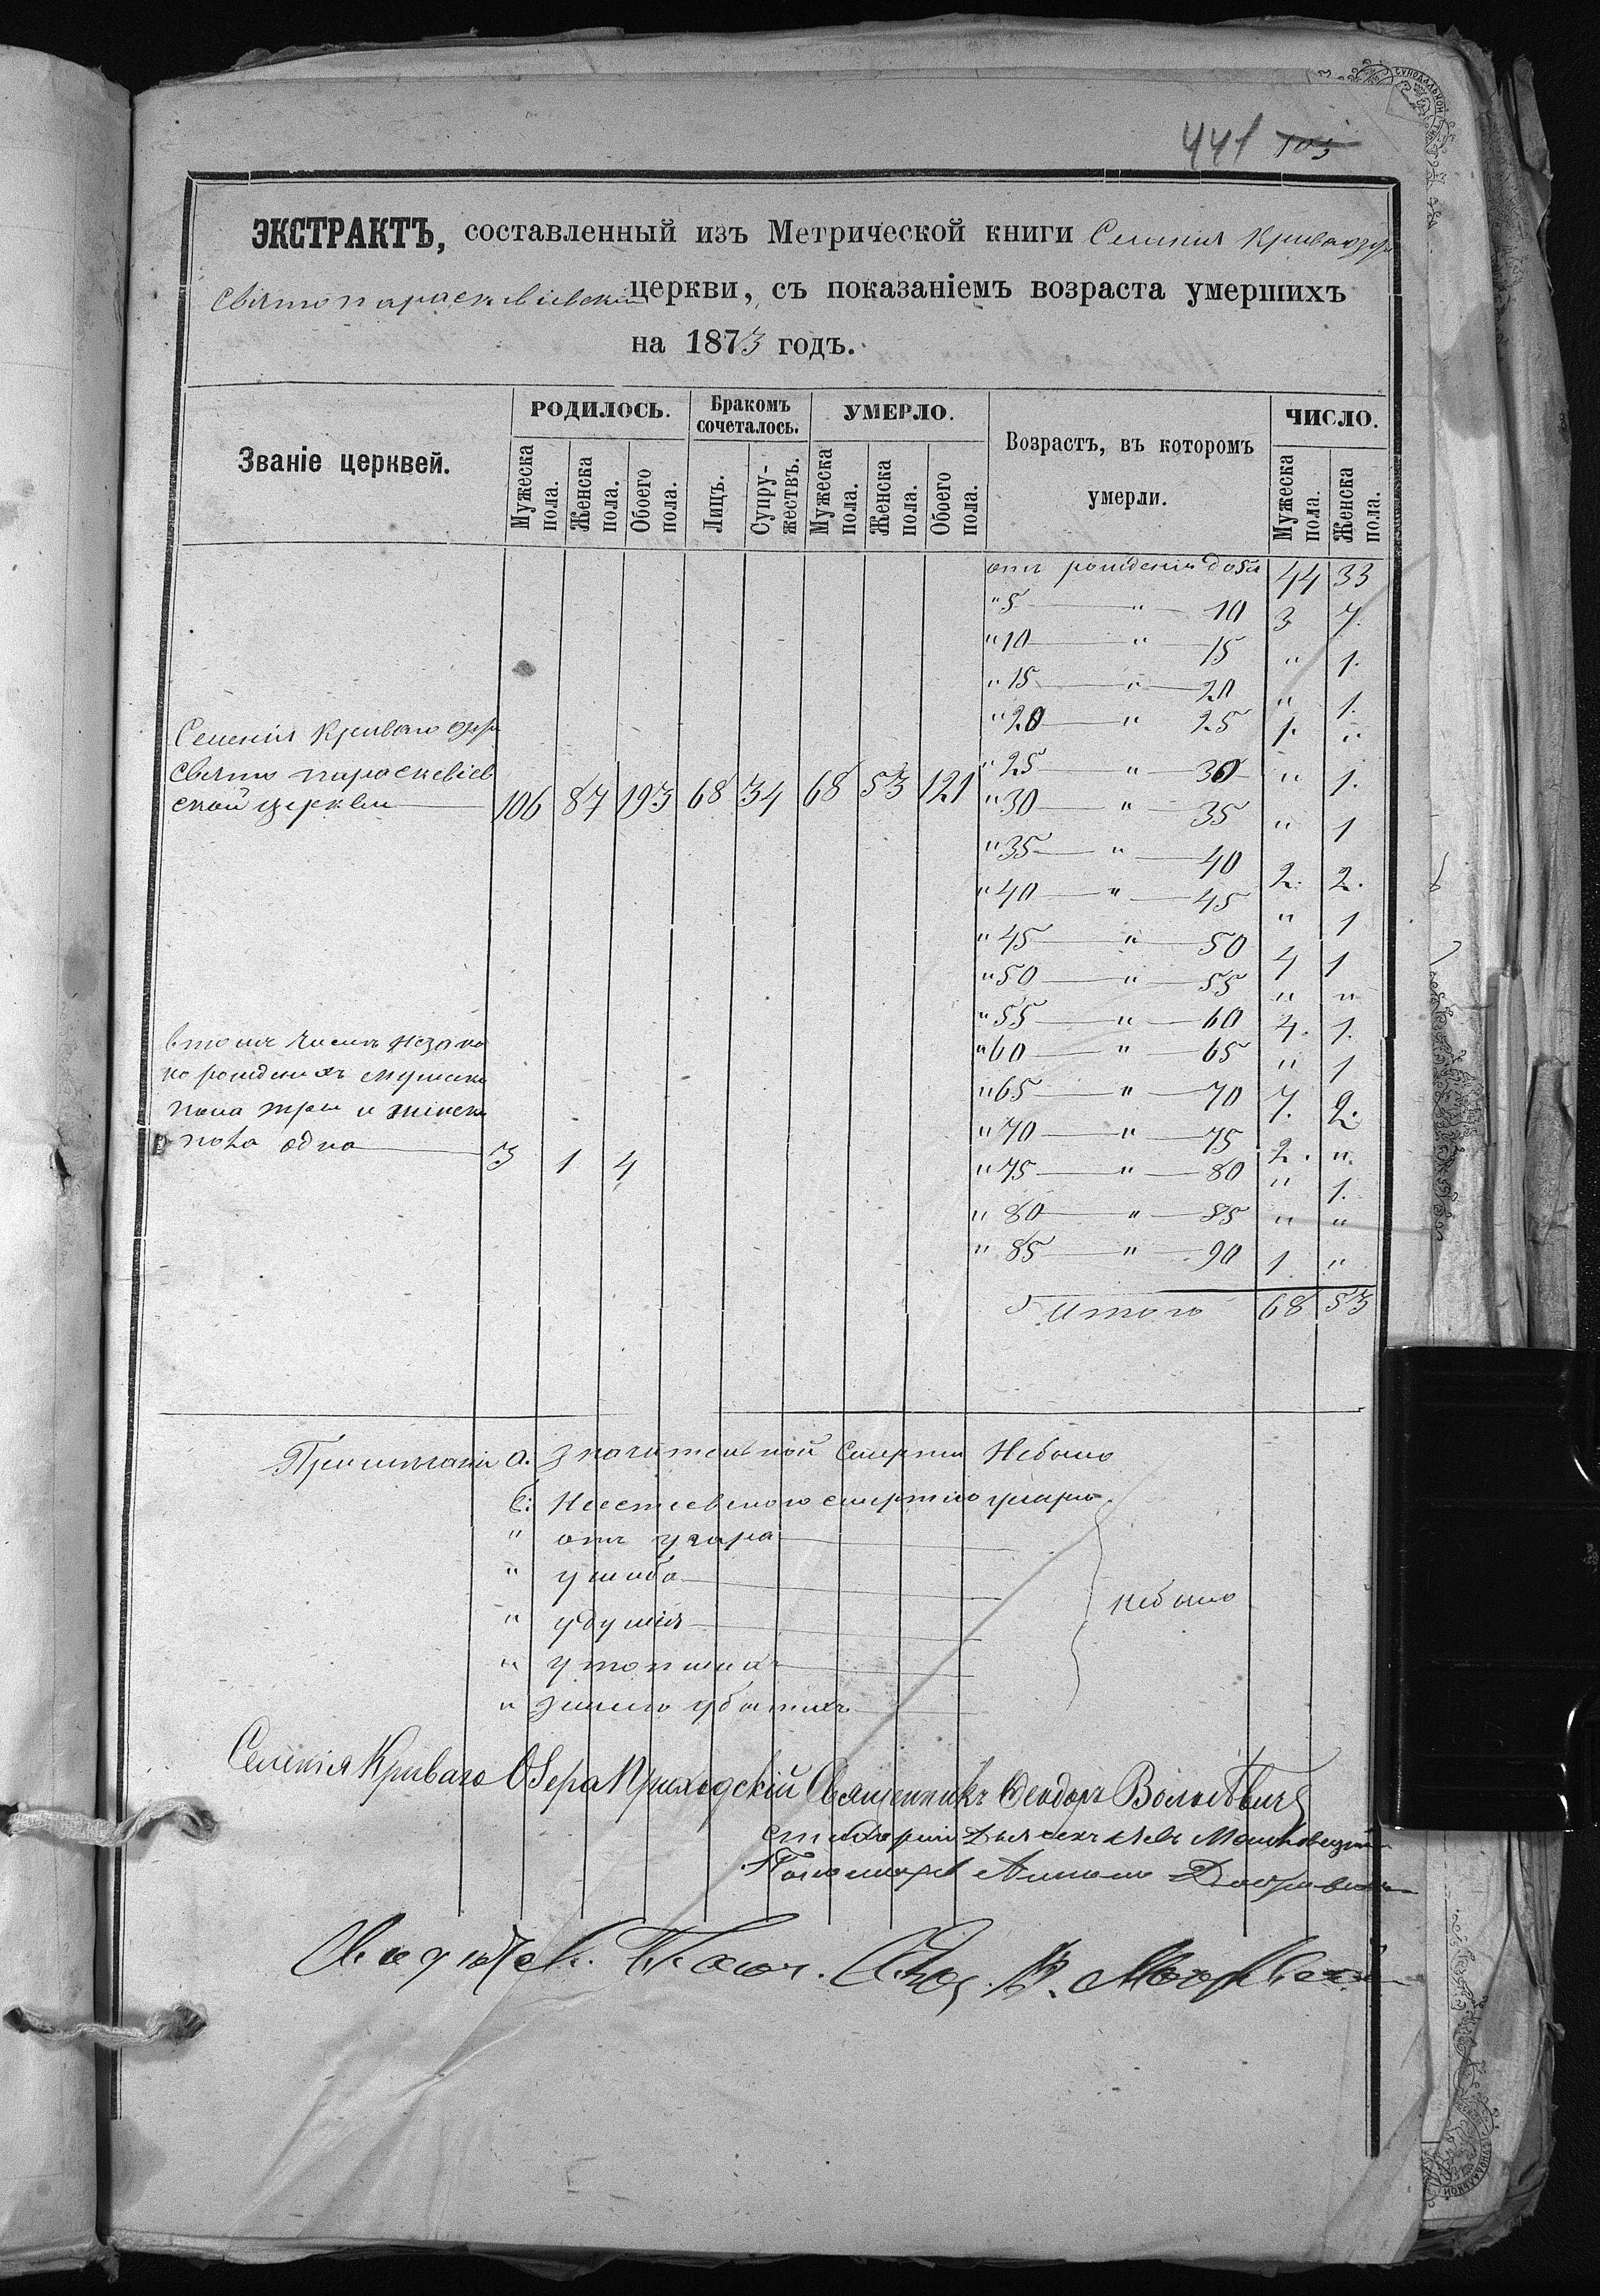 441 103
ЭКСТРАКТЪ, составленный изъ Метрической книги Селенія Криваозера
Святопараскевіевской церкви, съ показаніемъ возраста умершихъ
на 1873 годъ.
Званіе церквей.
РОДИЛОСЬ.
Мужеска пола.
Женска пола.
Обоего пола.
Бракомъ сочеталось.
Лицъ.
Супружествъ.
УМЕРЛО.
Мужеска пола.
Женска пола.
Обоего пола.
Возрастъ, въ которомъ умерли.
ЧИСЛО.
Мужеска пола.
Женска пола.
отъ рожденія до 5и 44 33
" 5 — " — 10 3 7.
" 10 — " — 15 " 1.
" 15 — " — 20 " 1.
" 20 — " 25 1. "
" 25 " — 30 " 1.
" 30 — " — 35 " 1
" 35 — " — 40 2. 2.
" 40 — " — 45 " 1
" 45 — " — 50 4 1
" 50 — " — 55 " "
" 55 — " — 60 4. 1.
" 60 — " — 65 " 1
" 65 — " — 70 7. 2.
" 70 — " — 75 2. "
" 75 — " — 80 " 1.
" 80 — " — 85 " "
" 85 — " — 90 1. "
Итого 68 53
Селенія Криваго озера
Свято параскевіев
ской церкви — 106 87 193 68 34 68 53 121
втомъ числѣ незако
но рожденыхъ мужеска
пола три и женска
пола одна — 3 1 4
Примѣчаніе а. Значительной смерти Небыло
в: Неестевеною смертію умерло
" отъ угара
" ушиба
" удушія
" утопшихъ
" зимлею убитихъ
небыло
Селенія Криваго Озера Приходскій Священникъ Феодоръ
Дьячекъ Левъ
Пономарь